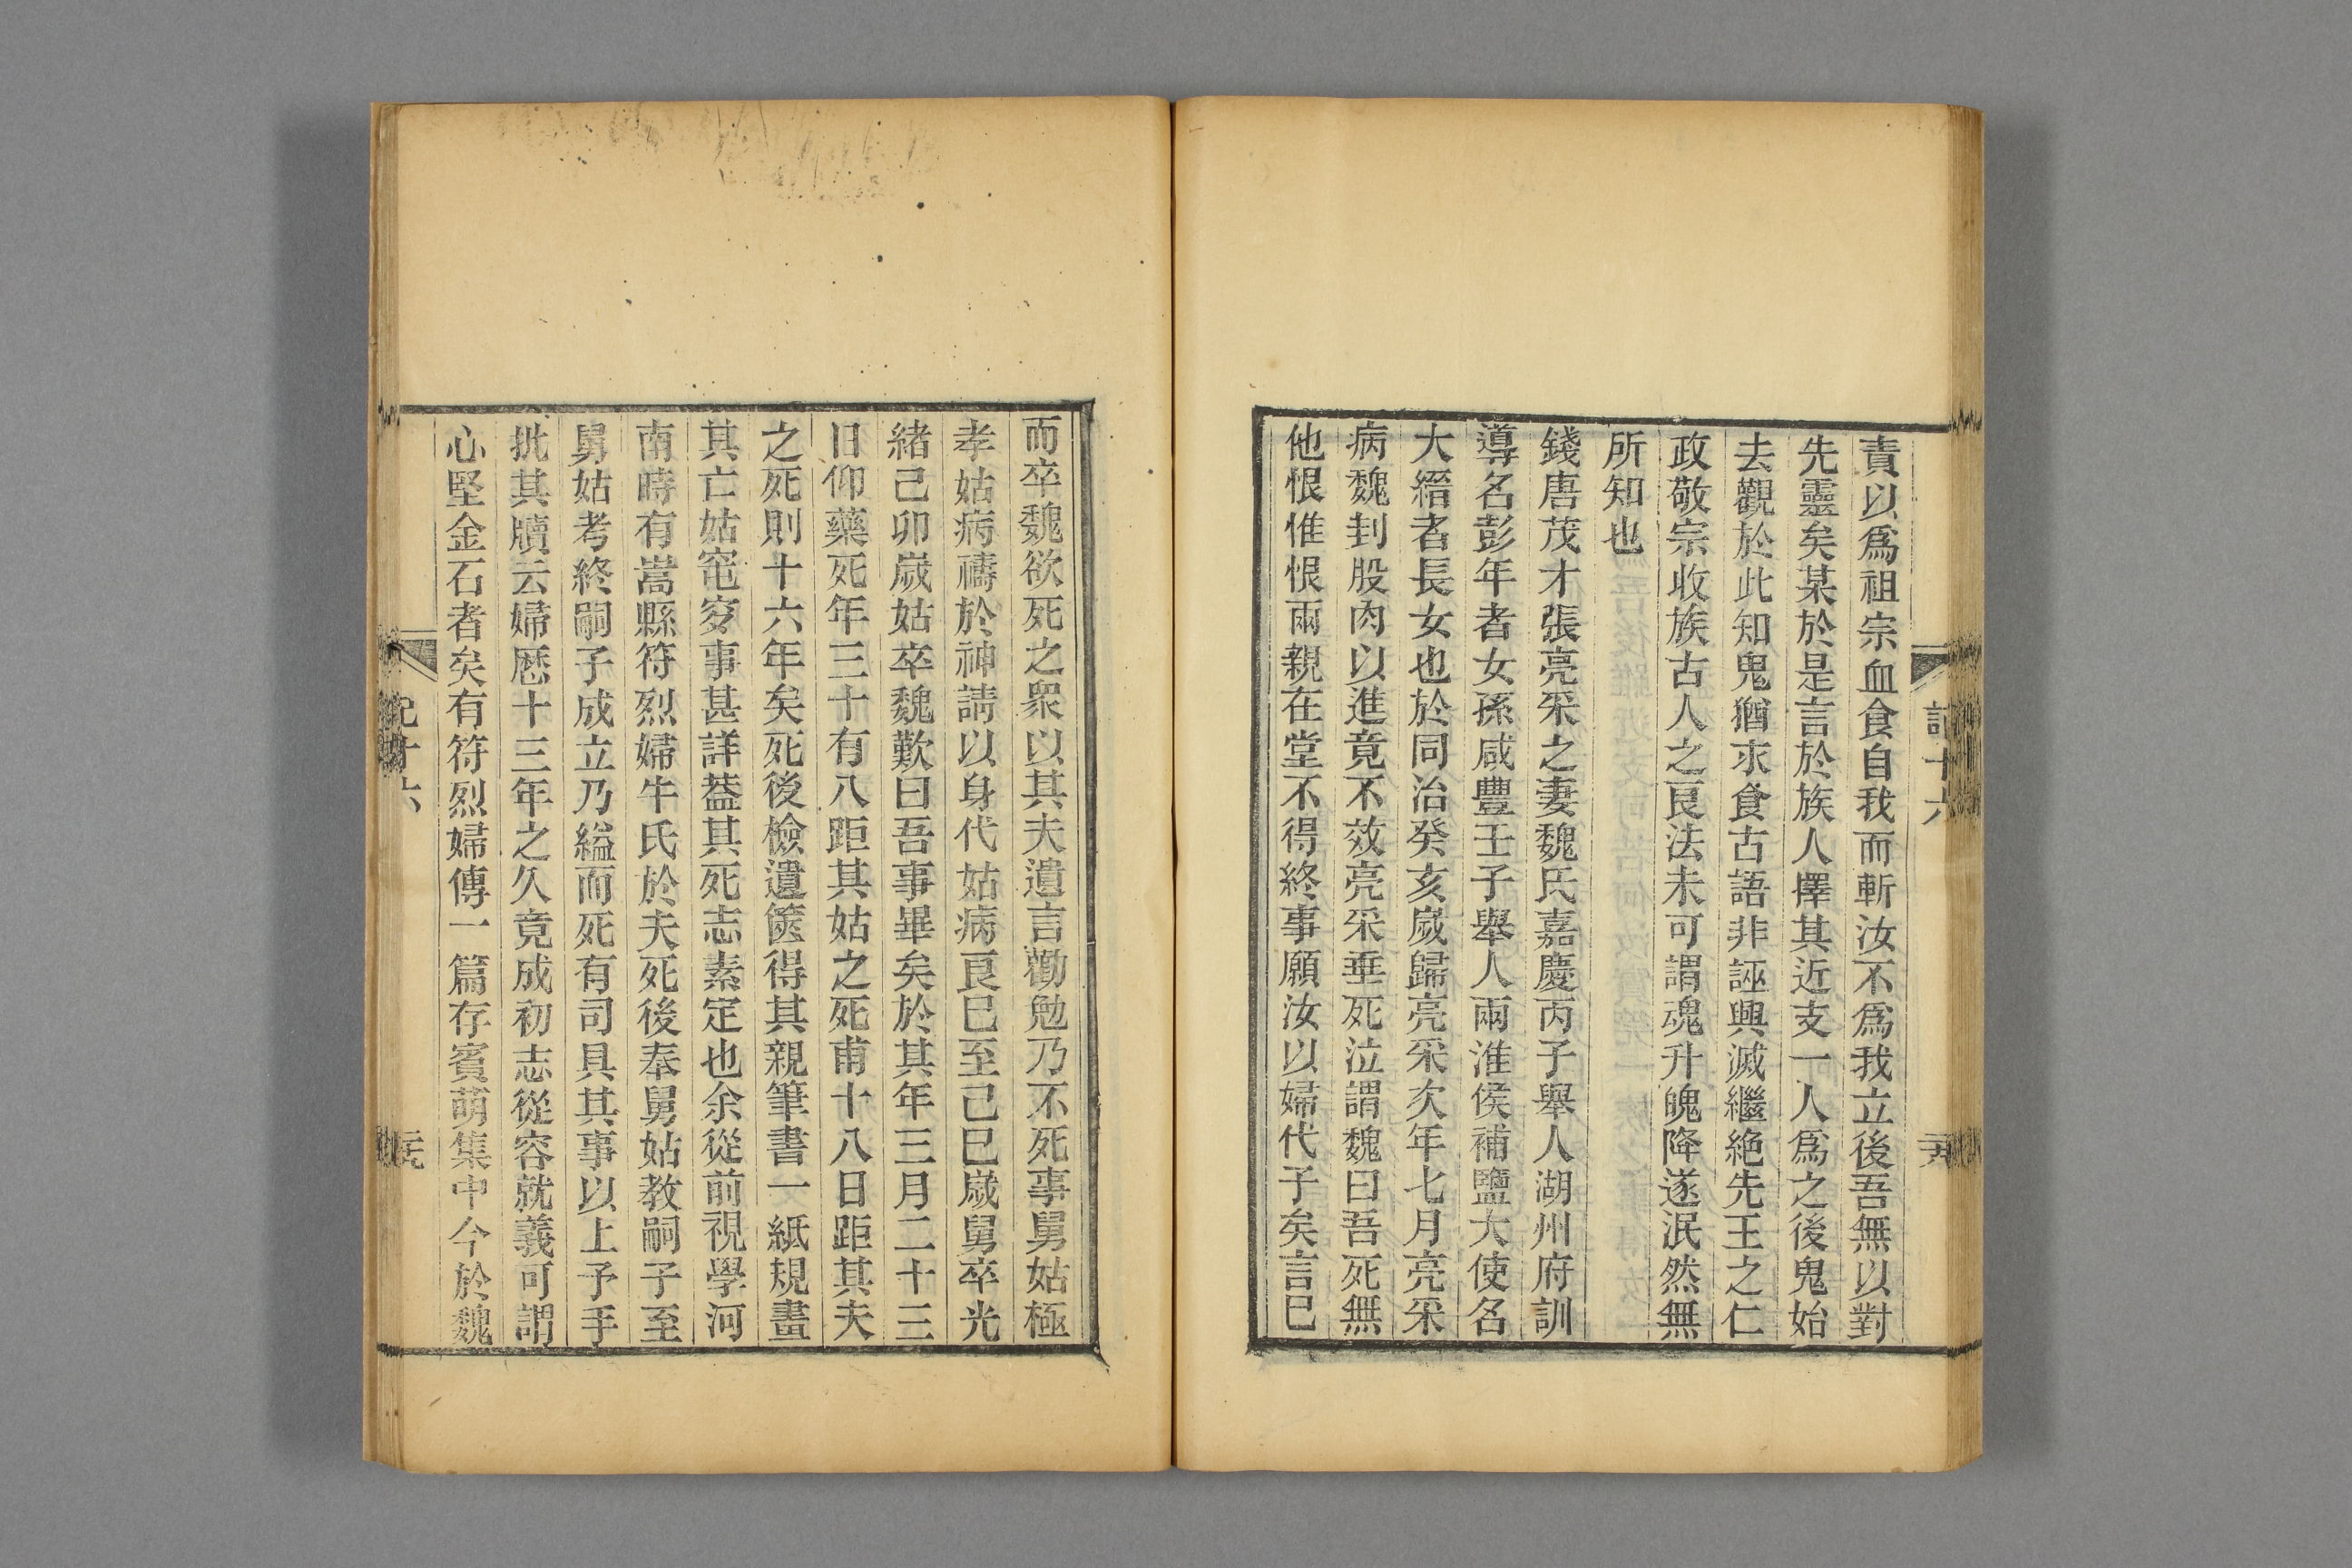 責以爲祖宗血食自我而斬汝不爲我立後吾無以對
先靈矣某於是言於族人擇其近支一人爲之後鬼始
去觀於此知鬼猶求食古語非誣興滅繼絕先王之仁
政敬宗收族古人之良法未可謂魂升魄降遂泯然無
所知也
錢唐茂才張亮采之妻魏氏嘉慶丙子舉人湖州府訓
導名彭年者女孫咸豐壬子舉人兩淮侯補鹽大使名
大縉者長女也於同治癸亥歲歸亮采次年七月亮采
病魏刲股肉以進竟不效亮采垂死泣謂魏曰吾死無
他恨惟恨兩親在堂不得終事願汝以婦代子矣言已
而卒魏欲死之衆以其夫遺言勸勉乃不死事舅姑極
孝姑病禱於神請以身代姑病良已至己巳歲舅卒光
緒己卯歲姑卒魏歎曰吾事畢矣於其年三月二十三
日仰藥死年三十有八距其姑之死甫十八日距其夫
之死則十六年矣死後檢遺篋得其親筆書一紙規畫
其亡姑窀穸事甚詳葢其死志素定也余從前視學河
南時有嵩縣符烈婦牛氏於夫死後奉舅姑教嗣子至
舅姑考終嗣子成立乃縊而死有司具其事以上予手
批其牘云婦歷十三年之久竟成初志從容就義可謂
心堅金石者矣有符烈婦傳一篇存賓萌集中今於魏
記十六